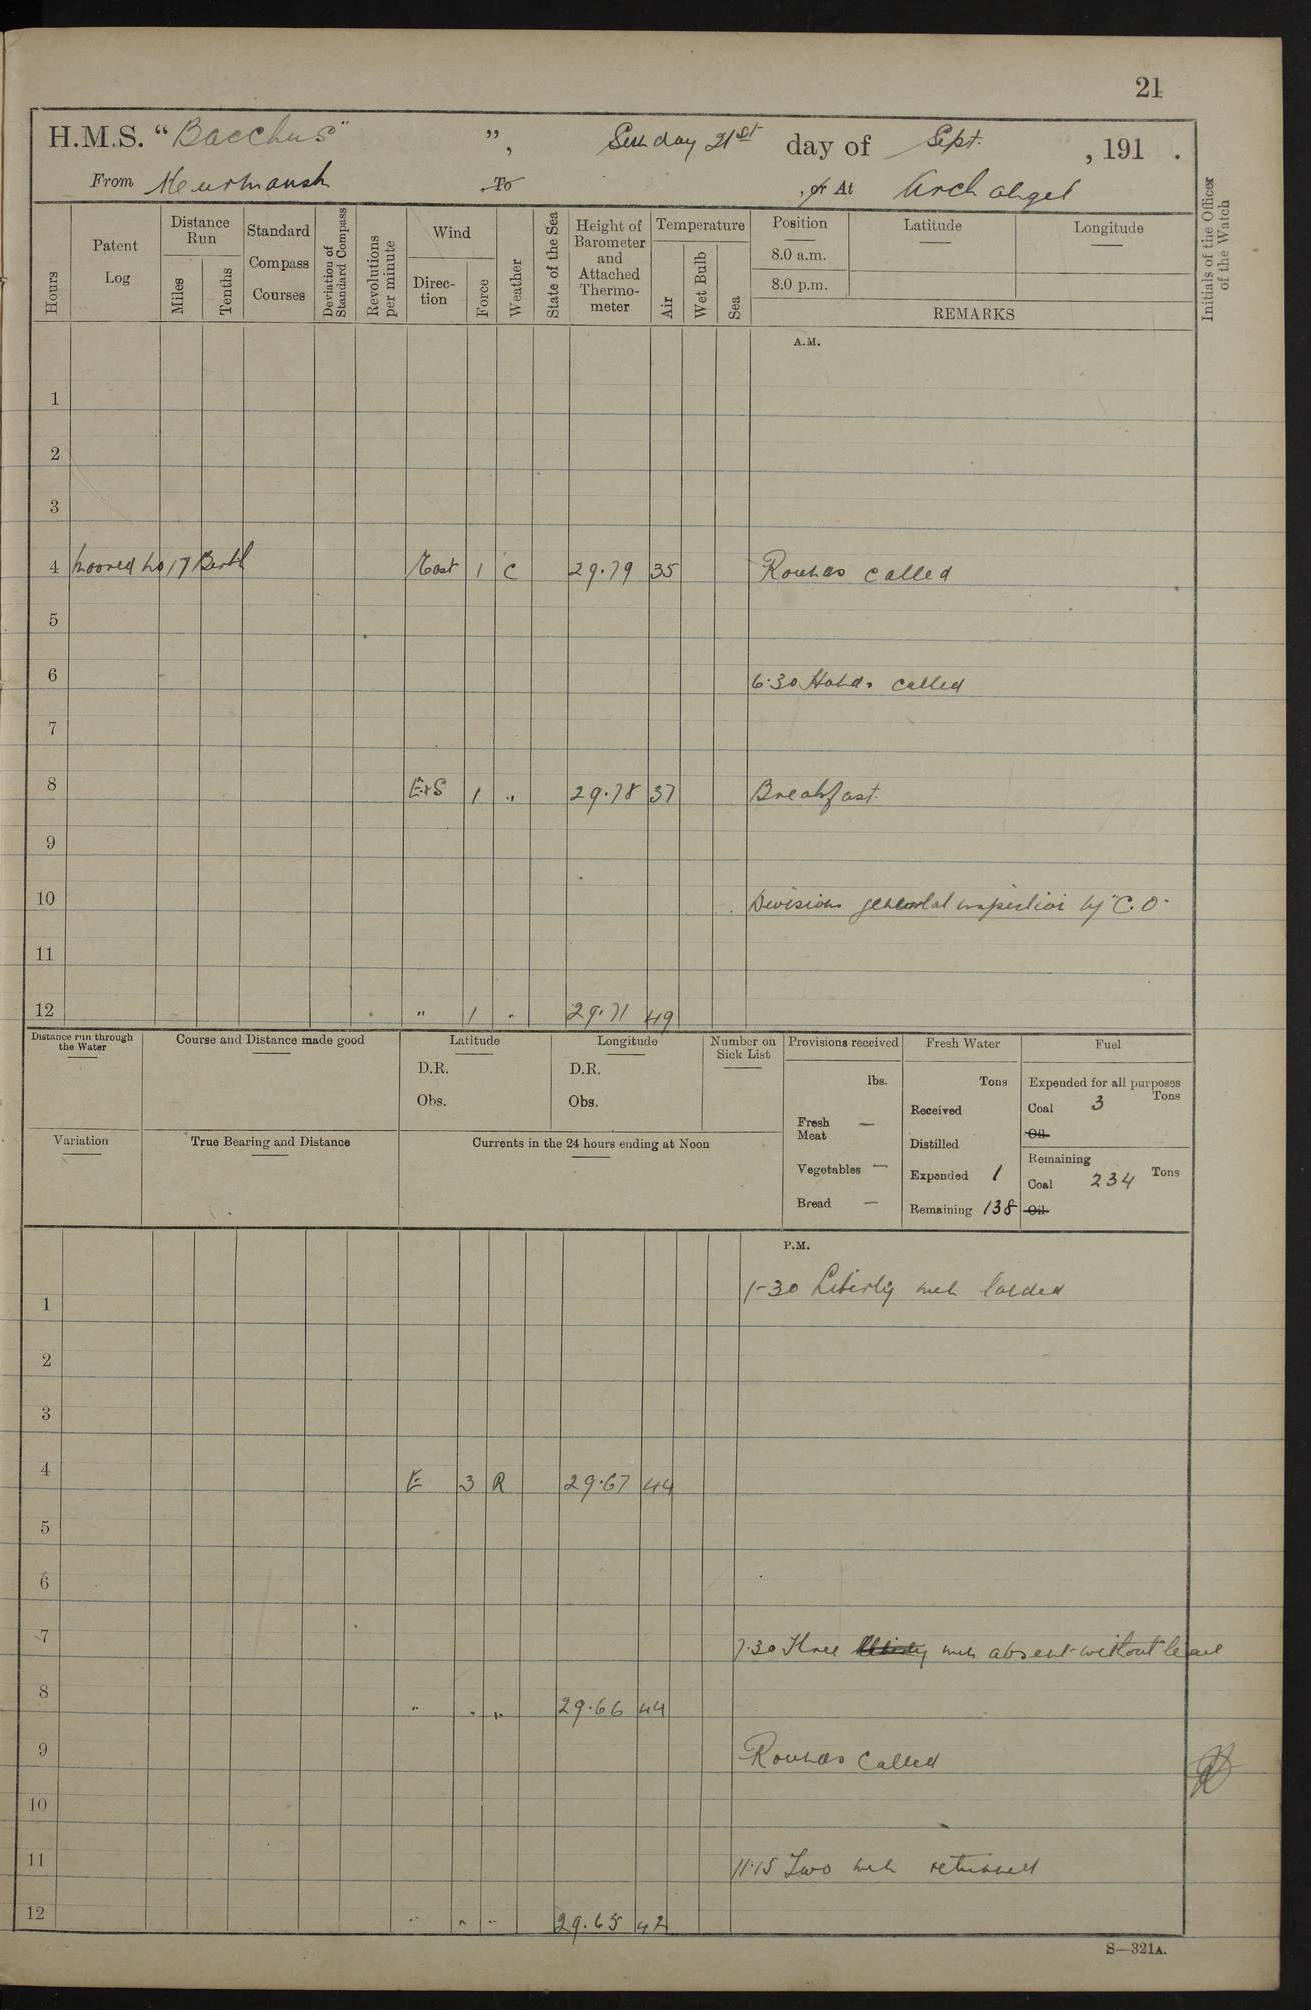 21
H.M.S. "Bacchus" ", Sunday 21st day of Sept. , 191 .
From Mourmansk To , or At Archangel
Hours
Patent Log
Distance Run
Miles
Tenths
Standard Compass Courses
Deviation of Standard Compass
Revolutions per minute
Wind
Direction
Force
Weather
State of the Sea
Height of Barometer and Attached Thermometer
Temperature
Air
Wet Bulb
Sea
Position
8.0 a.m.
8.0 p.m.
Latitude
Longitude
REMARKS
Initials of the Officer of the Watch
A.M.
1
2
3
4 moored No 17 Berth East 1 C 29.79 35 Rounds called
5
6 6.30 Hands called
7
8 ExS 1 " 29.78 37 Breakfast.
9
10 Divisions general inspection by C.O.
11
12 " 1 " 29.71 49
Distance run through the Water
Course and Distance made good
Latitude
D.R.
Obs.
Longitude
D.R.
Obs.
Number on Sick List
Variation
True Bearing and Distance
Currents in the 24 hours ending at Noon
Provisions received
lbs.
Fresh Meat —
Vegetables —
Bread —
Fresh Water
Tons
Received
Distilled
Expended 1
Remaining 138
Fuel
Expended for all purposes
Coal 3 Tons
Oil
Remaining
Coal 234 Tons
Oil
P.M.
1 1-30 Liberty men landed
2
3
4 E 3 R 29.67 44
5
6
7 7.30 Three liberty men absent without leave
8 " " " 29.66 44
9 Rounds Called
10
11 11.15 Two men returned
12 " " " 29.65 42
S—321A.